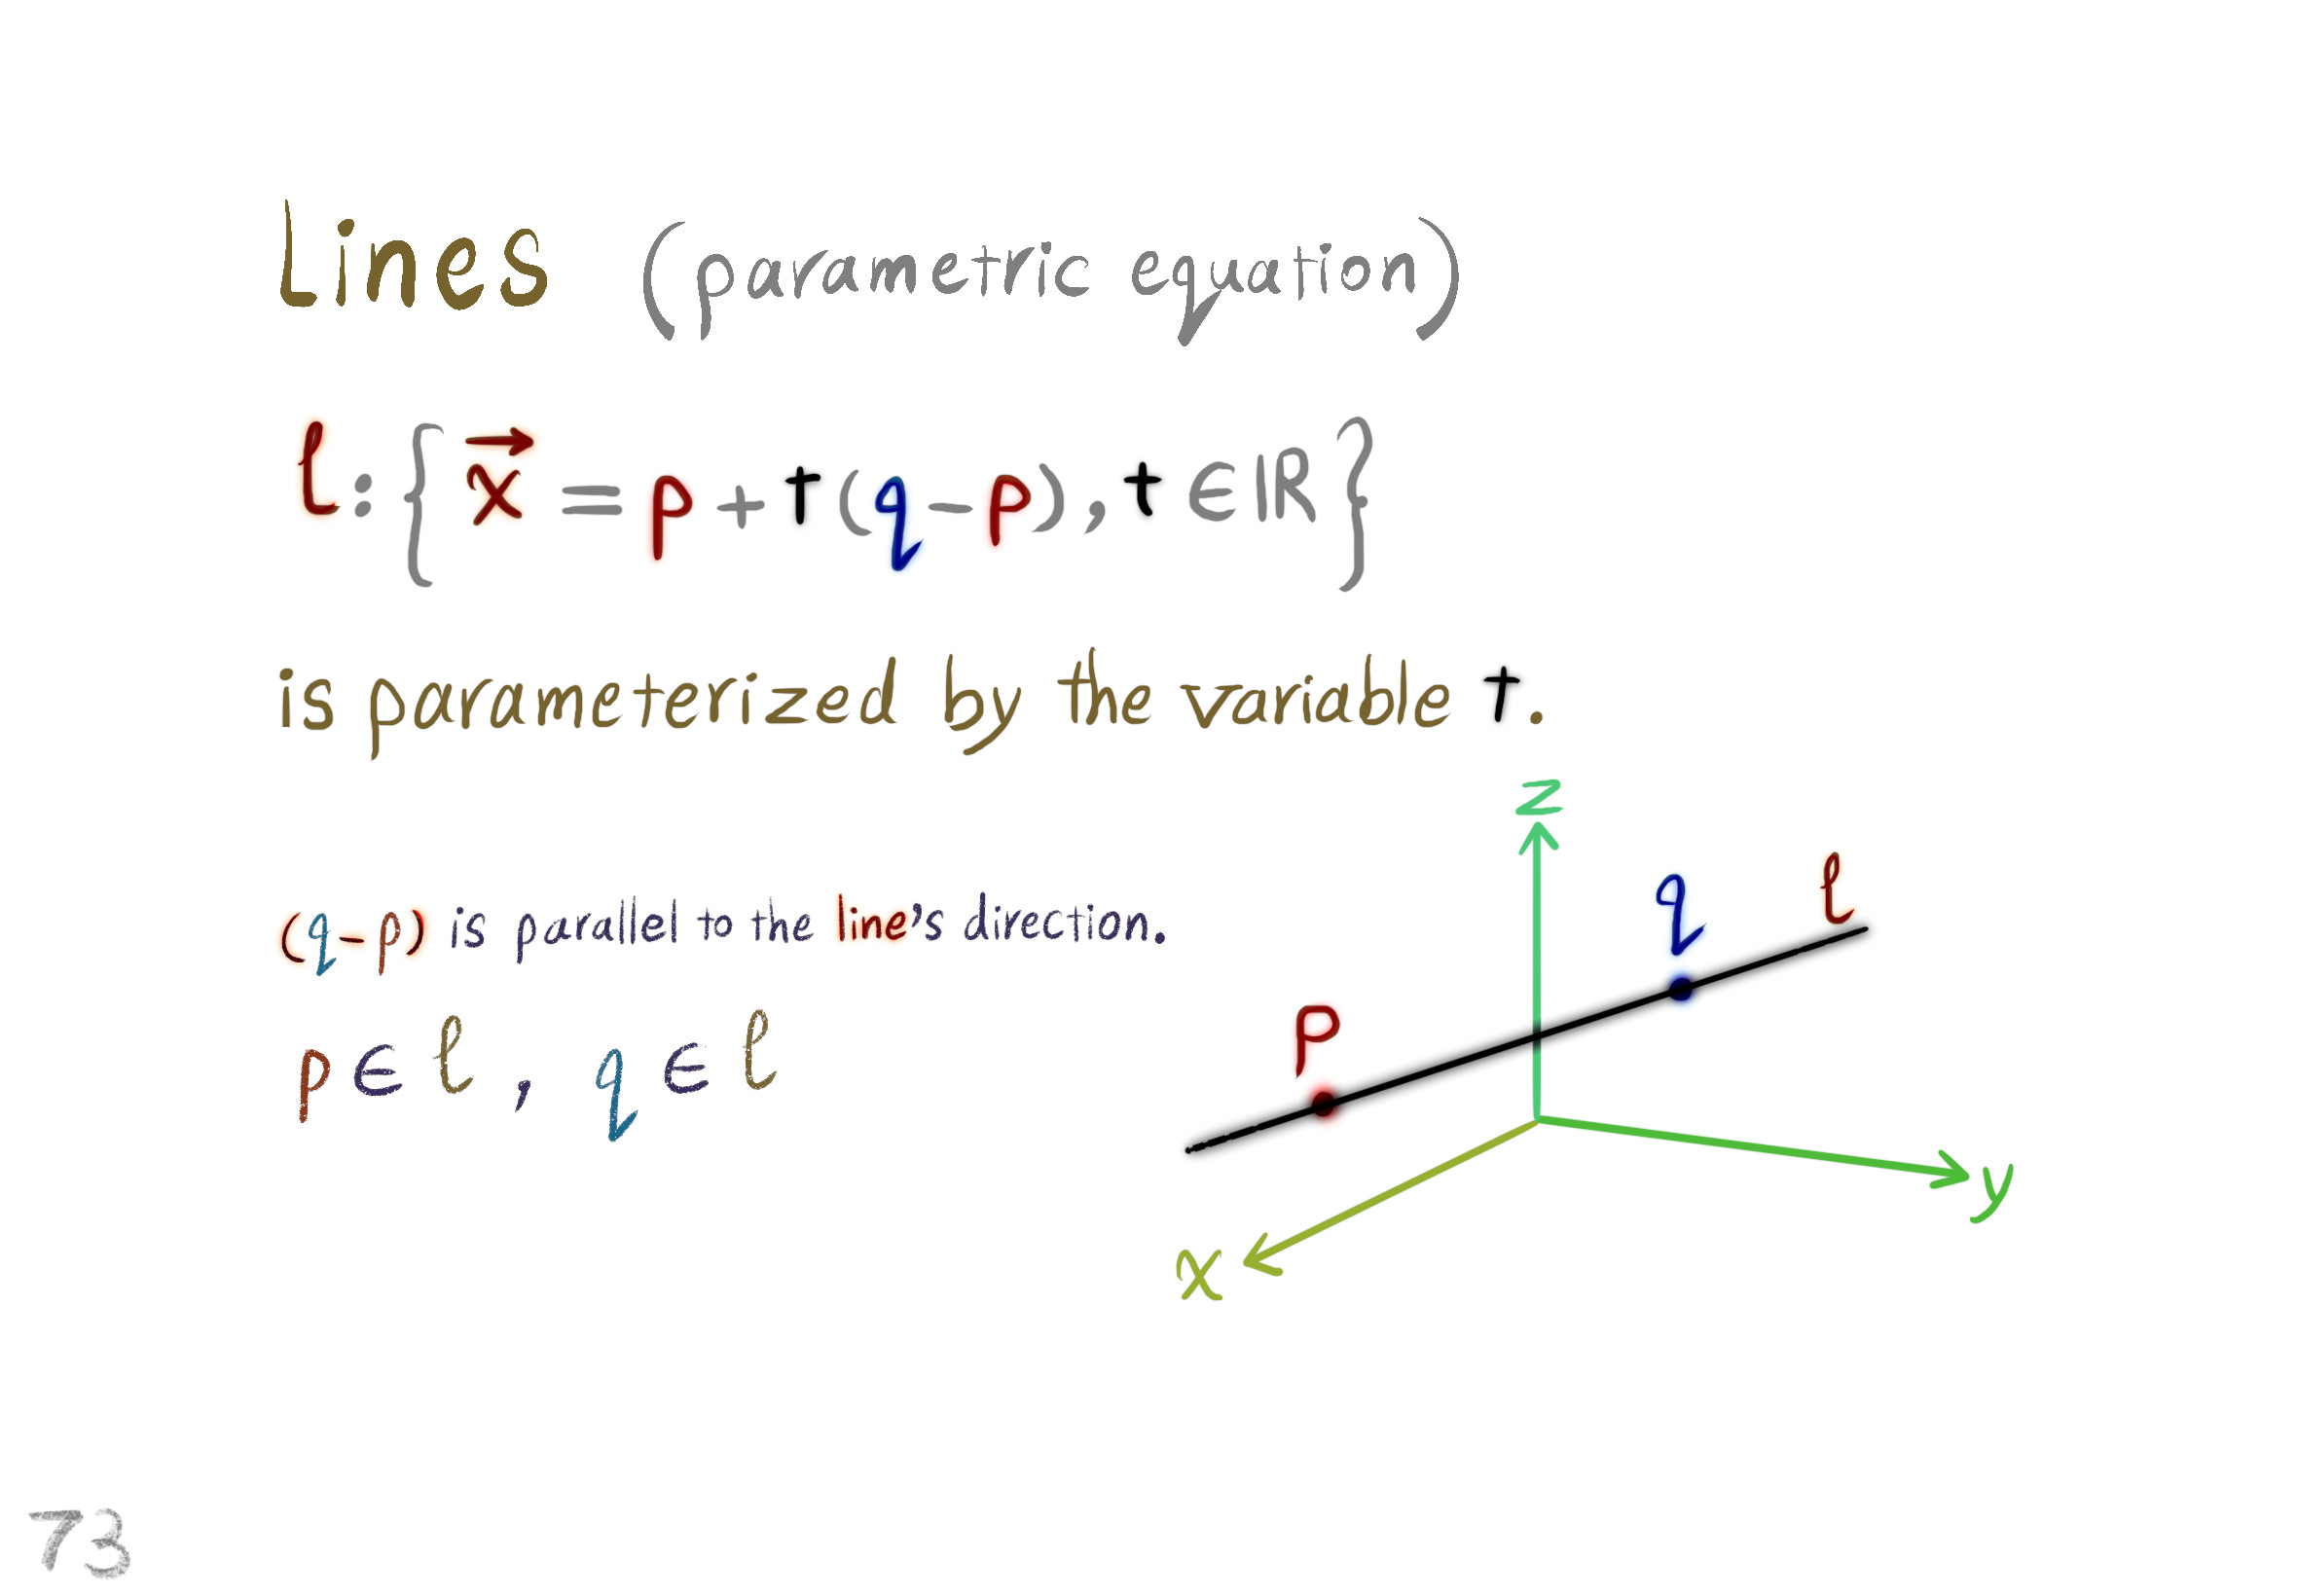 Lines (parametric equation)
l: { x⃗ = p + t (q - p), t ∈ ℝ }
is parameterized by the variable t.
(q-p) is parallel to the line's direction.
p ∈ l , q ∈ l
z
q
l
p
y
x
73